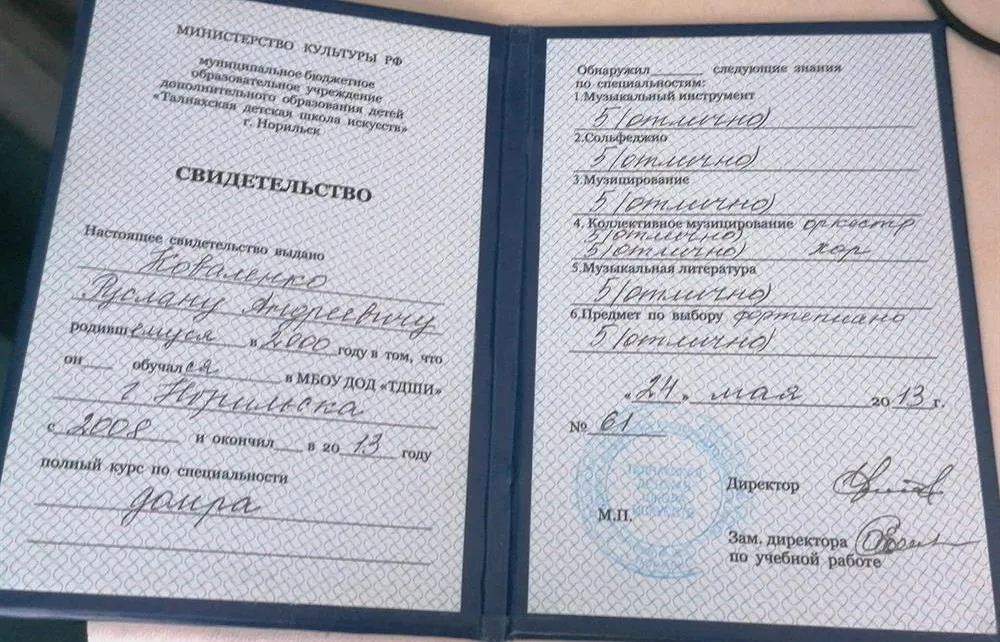 МИНИСТЕРСТВО КУЛЬТУРЫ РФ
муниципальное бюджетное
образовательное учреждение
дополнительного образования детей
«Талнахская детская школа искусств»
г. Норильск
СВИДЕТЕЛЬСТВО
Настоящее свидетельство выдано
Коваленко
Руслану Андреевичу
родившемуся в 2000 году в том, что
он обучался в МБОУ ДОД «ТДШИ»
г Норильска
с 2008 и окончил в 2013 году
полный курс по специальности
домра
Обнаружил следующие знания
по специальностям:
1.Музыкальный инструмент
5 (отлично)
2.Сольфеджио
5 (отлично)
3.Музицирование
5 (отлично)
4. Коллективное музицирование оркестр
5 (отлично)
5 (отлично) хор
5.Музыкальная литература
5 (отлично)
6.Предмет по выбору фортепиано
5 (отлично)
«24» мая 2013 г.
№ 61
Директор
М.П.
Зам. директора
по учебной работе